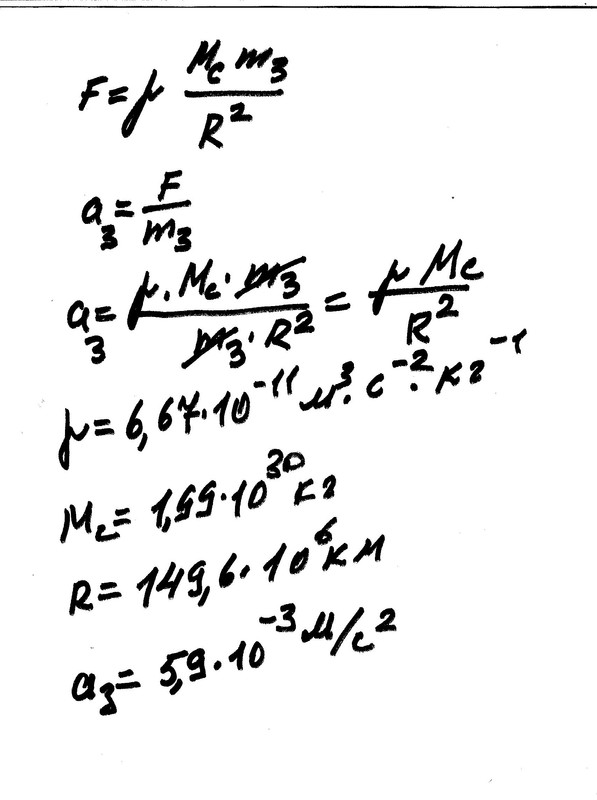 F = μ M_c m_3 / R^2
a_3 = F / m_3
a_3 = μ · M_c · m_3 / m_3 · R^2 = μ M_c / R^2
μ = 6,67·10^-11 м^3 · с^-2 · кг^-1
M_c = 1,99·10^30 кг
R = 149,6·10^6 км
a_3 = 5,9·10^-3 м/с^2